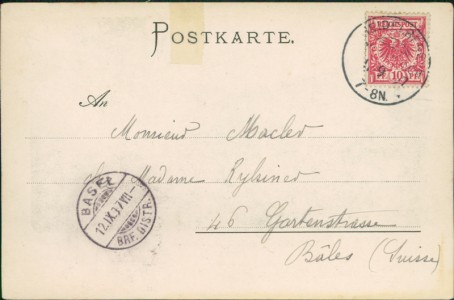 POSTKARTE.
REICHSPOST
10 10
7-8N.
An
Monsieur Macler
Madame
46 Gartenstrasse
Bâles (Suisse)
BASEL
12.IX.97.VII-
BRF. DISTR.